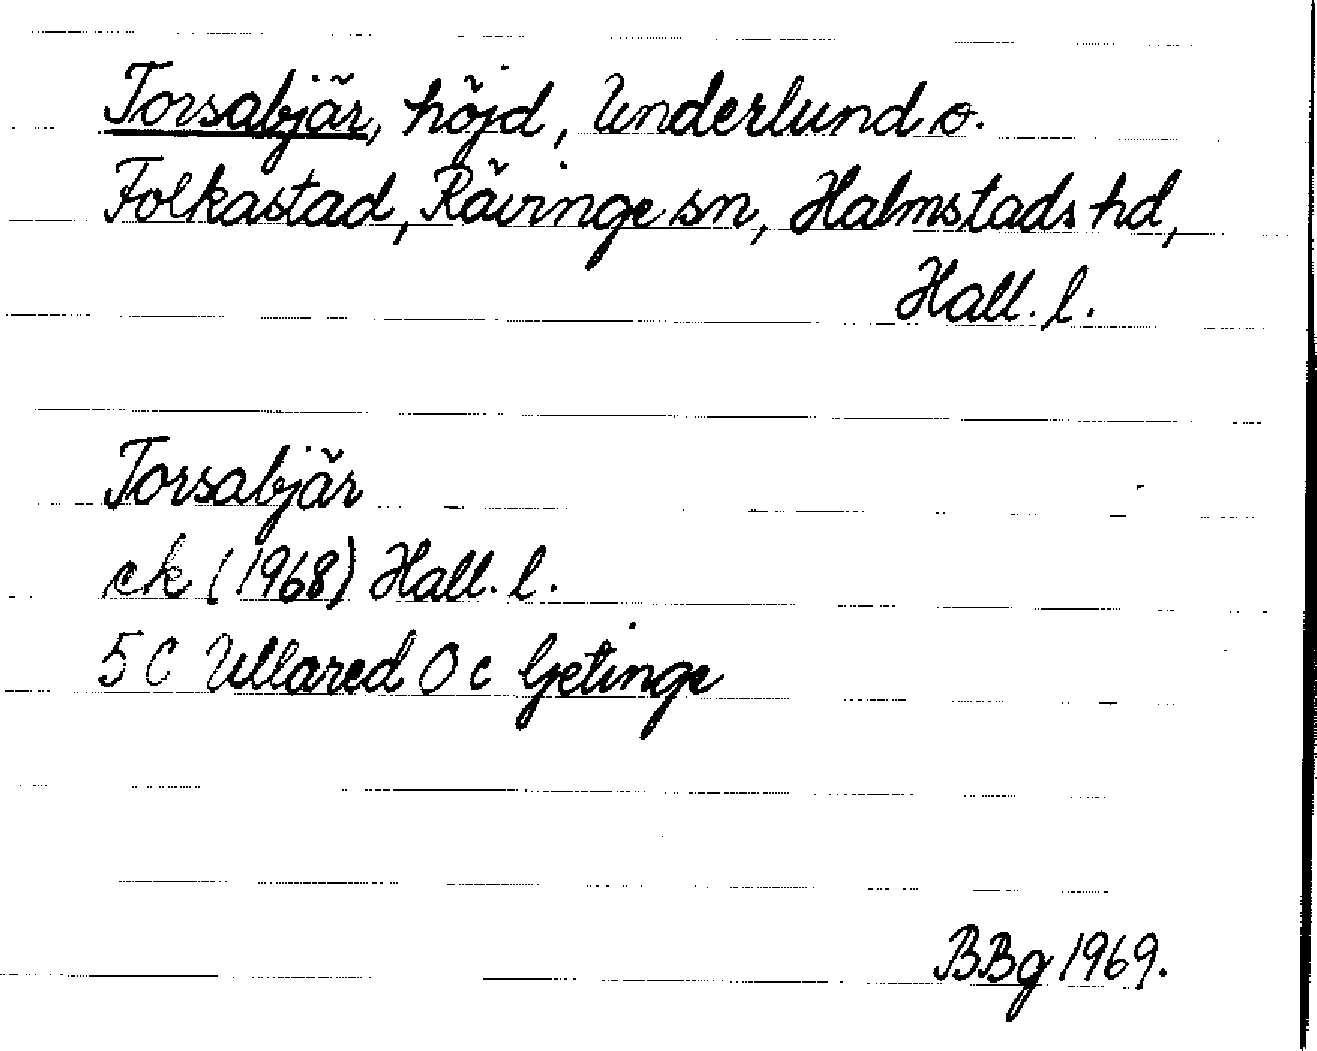 Torsabjär, höjd, Underlund o.
Folkastad, Rävinge sn, Halmstads hd,
Hall. l.
Torsabjär
ek (1968) Hall. l.
5 C Ullared 0 c Getinge
BBg 1969.